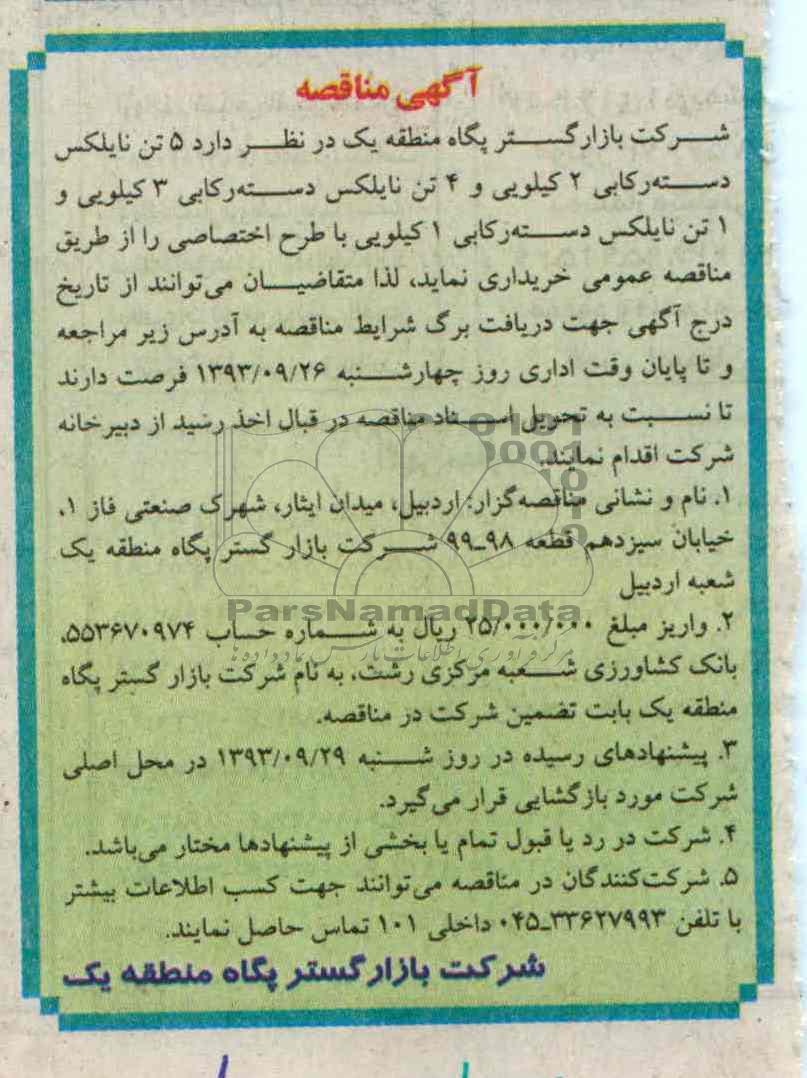 آگهی مناقصه
شرکت بازارگستر پگاه منطقه یک در نظر دارد ۵ تن نایلکس
دسته‌رکابی ۲ کیلویی و ۴ تن نایلکس دسته‌رکابی ۳ کیلویی و
۱ تن نایلکس دسته‌رکابی ۱ کیلویی با طرح اختصاصی را از طریق
مناقصه عمومی خریداری نماید، لذا متقاضیان می‌توانند از تاریخ
درج آگهی جهت دریافت برگ شرایط مناقصه به آدرس زیر مراجعه
و تا پایان وقت اداری روز چهارشنبه ۱۳۹۳/۰۹/۲۶ فرصت دارند
تا نسبت به تحویل اسناد مناقصه در قبال اخذ رسید از دبیرخانه
شرکت اقدام نمایند.
۱. نام و نشانی مناقصه‌گزار: اردبیل، میدان ایثار، شهرک صنعتی فاز ۱،
خیابان سیزدهم قطعه ۹۸ـ۹۹ شرکت بازار گستر پگاه منطقه یک
شعبه اردبیل
ParsNamadData
۲. واریز مبلغ ۲۵/۰۰۰/۰۰۰ ریال به شماره حساب ۵۵۳۶۷۰۹۷۴،
مرکز فرآوری اطلاعات پارس نماد داده‌ها
بانک کشاورزی شعبه مرکزی رشت، به نام شرکت بازار گستر پگاه
منطقه یک بابت تضمین شرکت در مناقصه.
۳. پیشنهادهای رسیده در روز شنبه ۱۳۹۳/۰۹/۲۹ در محل اصلی
شرکت مورد بازگشایی قرار می‌گیرد.
۴. شرکت در رد یا قبول تمام یا بخشی از پیشنهادها مختار می‌باشد.
۵. شرکت‌کنندگان در مناقصه می‌توانند جهت کسب اطلاعات بیشتر
با تلفن ۳۳۶۲۷۹۹۳ـ۰۴۵ داخلی ۱۰۱ تماس حاصل نمایند.
شرکت بازارگستر پگاه منطقه یک